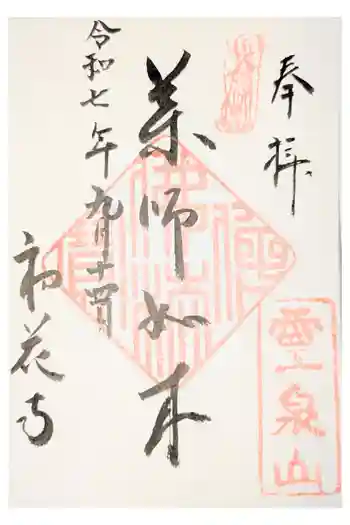 奉拝
霊泉山
薬師如来
佛法僧寶
令和七年九月十四日
初花寺